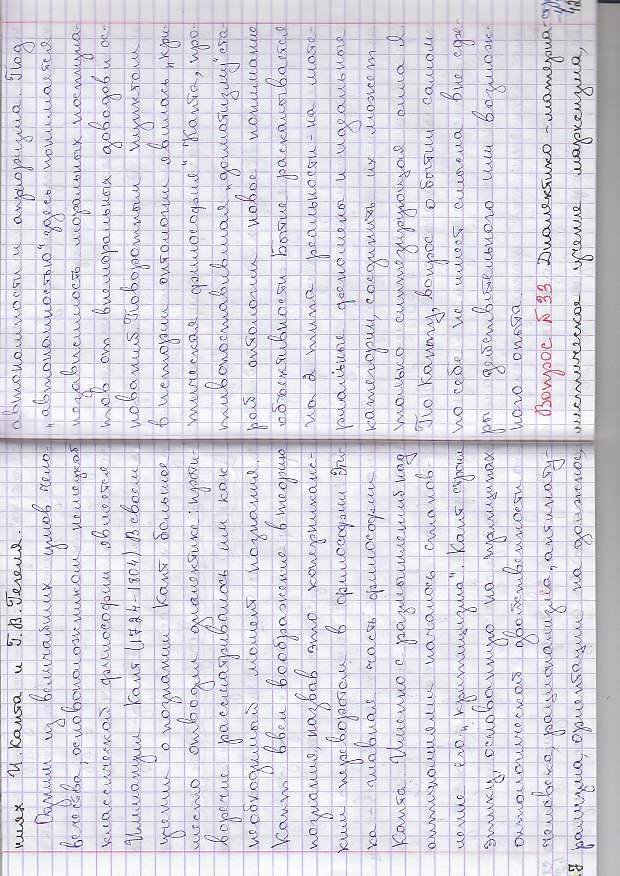 ниях И. Канта и Г.В. Гегеля.
Одним из величайших умов чело-
вечества, основоположником немецкой
классической философии является
Иммануил Кант (1724-1804) В своём
учении о познании Кант большое
место отводил диалектике: проти-
воречие рассматривалось им как
необходимый момент познания.
Кант ввел воображение в теорию
познания, назвав это коперниканс-
ким переворотом в философии. Эти-
ка - главная часть философии
Канта. Именно с размышлений над
антиномиями началось станов-
ление его "критицизма". Кант строит
этику, основанную на принципах
онтологической двойственности
человека, рационализма, антинату-
рализма, ориентации на должное,
автономности и априоризма. Под
"автономностью" здесь понимается
независимость моральных постула-
тов от внеморальных доводов и ос-
нований. Поворотным пунктом
в истории онтологии явилась "кри-
тическая философия" Канта, про-
тивопоставившая "догматизму" ста-
рой онтологии новое понимание
объективности. Бытие раскалывается
на 2 типа реальности - на мате-
риальные феномены и идеальные
категории, соединить их может
только синтезирующая сила Я.
По Канту, вопрос о бытии самом
по себе не имеет смысла вне сфе-
ры действительного или возмож-
ного опыта.
Вопрос №33 Диалектико-материа-
листическое учение марксизма,
42